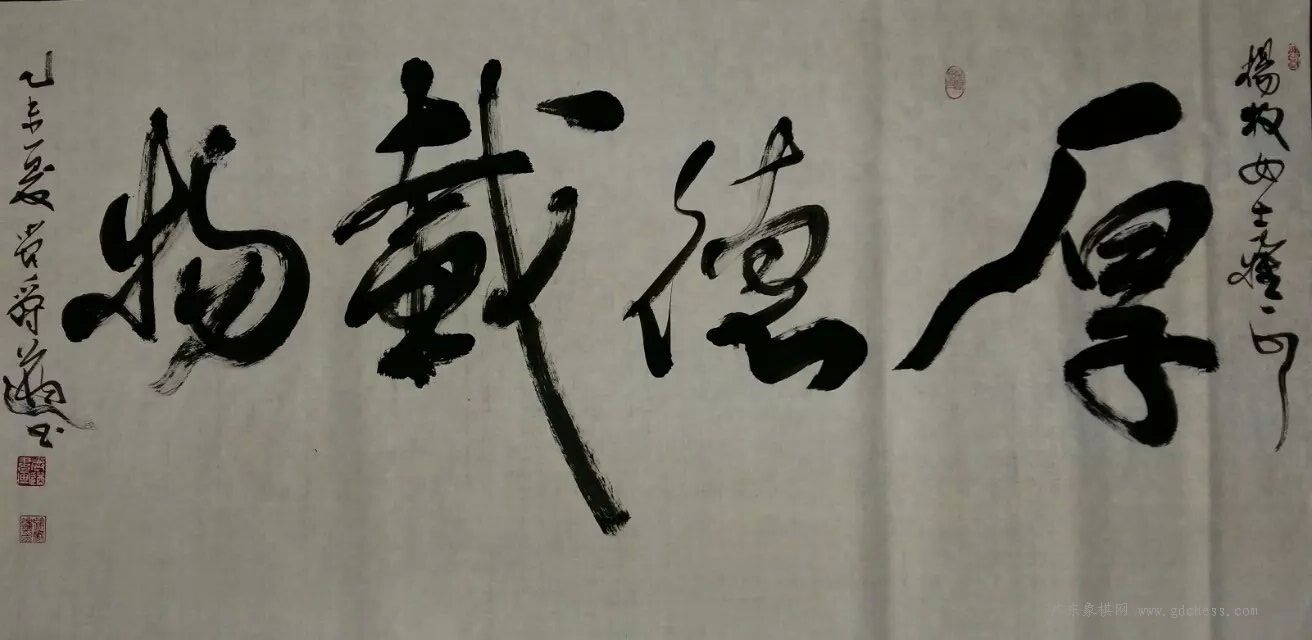 楊牧女士雅正
厚德載物
乙未夏
书
广东象棋网 www.gdchess.com